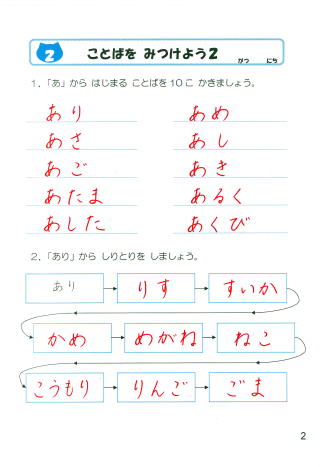 2 ことばを みつけよう2 がつ にち
1.「あ」から はじまる ことばを10こ かきましょう。
あり あめ
あさ あし
あご あき
あたま あるく
あした あくび
2.「あり」から しりとりを しましょう。
あり りす すいか
かめ めがね ねこ
こうもり りんご ごま
2